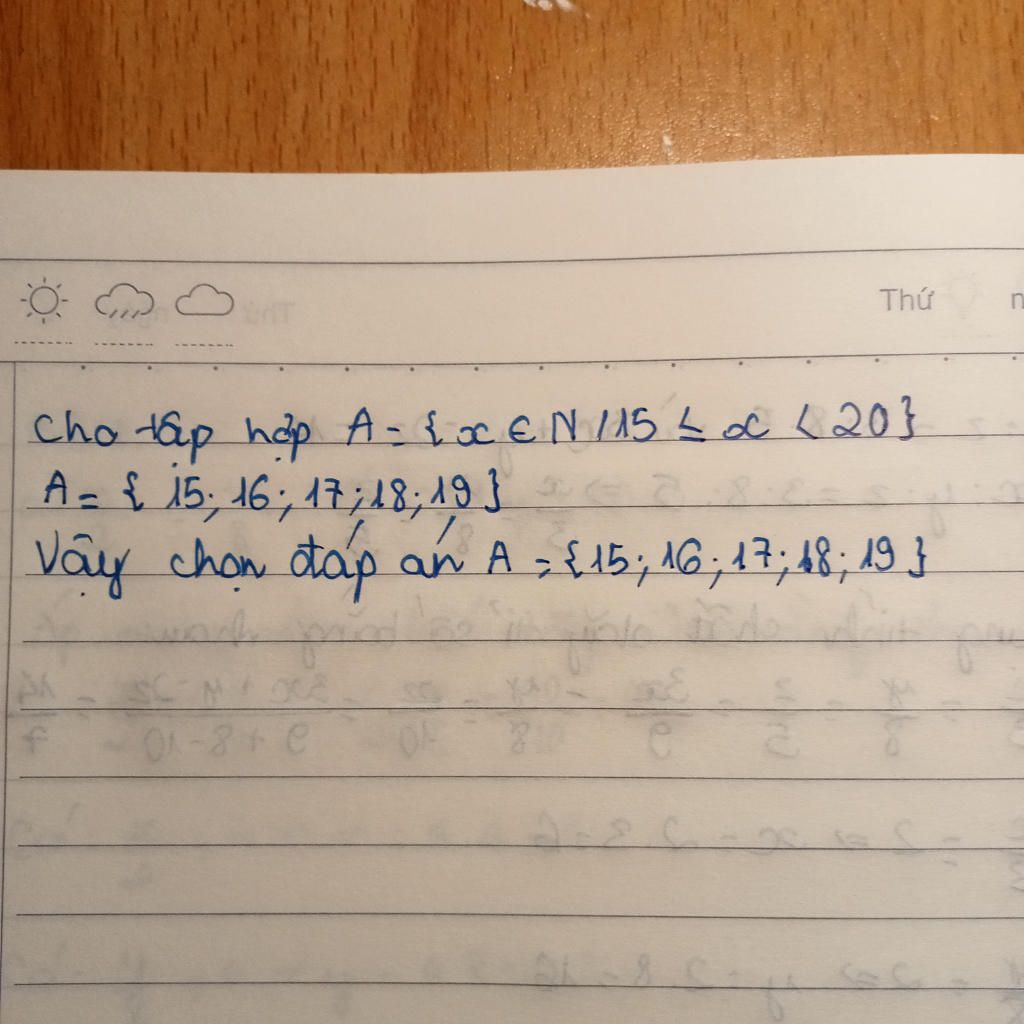 Thứ
Cho tập hợp A = {x ∈ N / 15 ≤ x < 20}
A = { 15; 16; 17; 18; 19 }
Vậy chọn đáp án A = {15; 16; 17; 18; 19 }